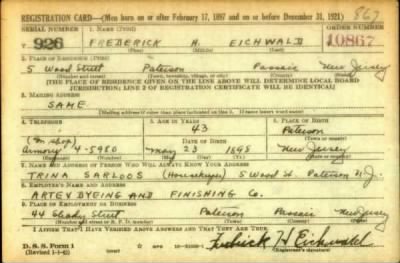 REGISTRATION CARD—(Men born on or after February 17, 1897 and on or before December 31, 1921) 867
SERIAL NUMBER 1. NAME (Print) ORDER NUMBER
T 926 FREDERICK H. EICHWALD 10867
2. PLACE OF RESIDENCE (Print)
5 Wood Street Paterson Passaic New Jersey
(Number and street) (Town, township, village, or city) (County) (State)
[THE PLACE OF RESIDENCE GIVEN ON THE LINE ABOVE WILL DETERMINE LOCAL BOARD
JURISDICTION; LINE 2 OF REGISTRATION CERTIFICATE WILL BE IDENTICAL]
3. MAILING ADDRESS
SAME
[Mailing address if other than place indicated on line 2. If same insert word same]
4. TELEPHONE 5. AGE IN YEARS 6. PLACE OF BIRTH
43 Paterson
(Town or county)
DATE OF BIRTH
Armory 4-5980 May 23 1898 New Jersey
(Exchange) (Number) (Mo.) (Day) (Yr.) (State or country)
7. NAME AND ADDRESS OF PERSON WHO WILL ALWAYS KNOW YOUR ADDRESS
TRINA SARLOOS (Housekeeper) 5 Wood St. Paterson N.J.
8. EMPLOYER'S NAME AND ADDRESS
ARTEX DYEING AND FINISHING Co.
9. PLACE OF EMPLOYMENT OR BUSINESS
44 Shady Street Paterson Passaic New Jersey
(Number and street or R. F. D. number) (Town) (County) (State)
I AFFIRM THAT I HAVE VERIFIED ABOVE ANSWERS AND THAT THEY ARE TRUE.
D. S. S. Form 1
(Revised 1-1-42) Fredrick H Eichwald
(Registrant's signature)